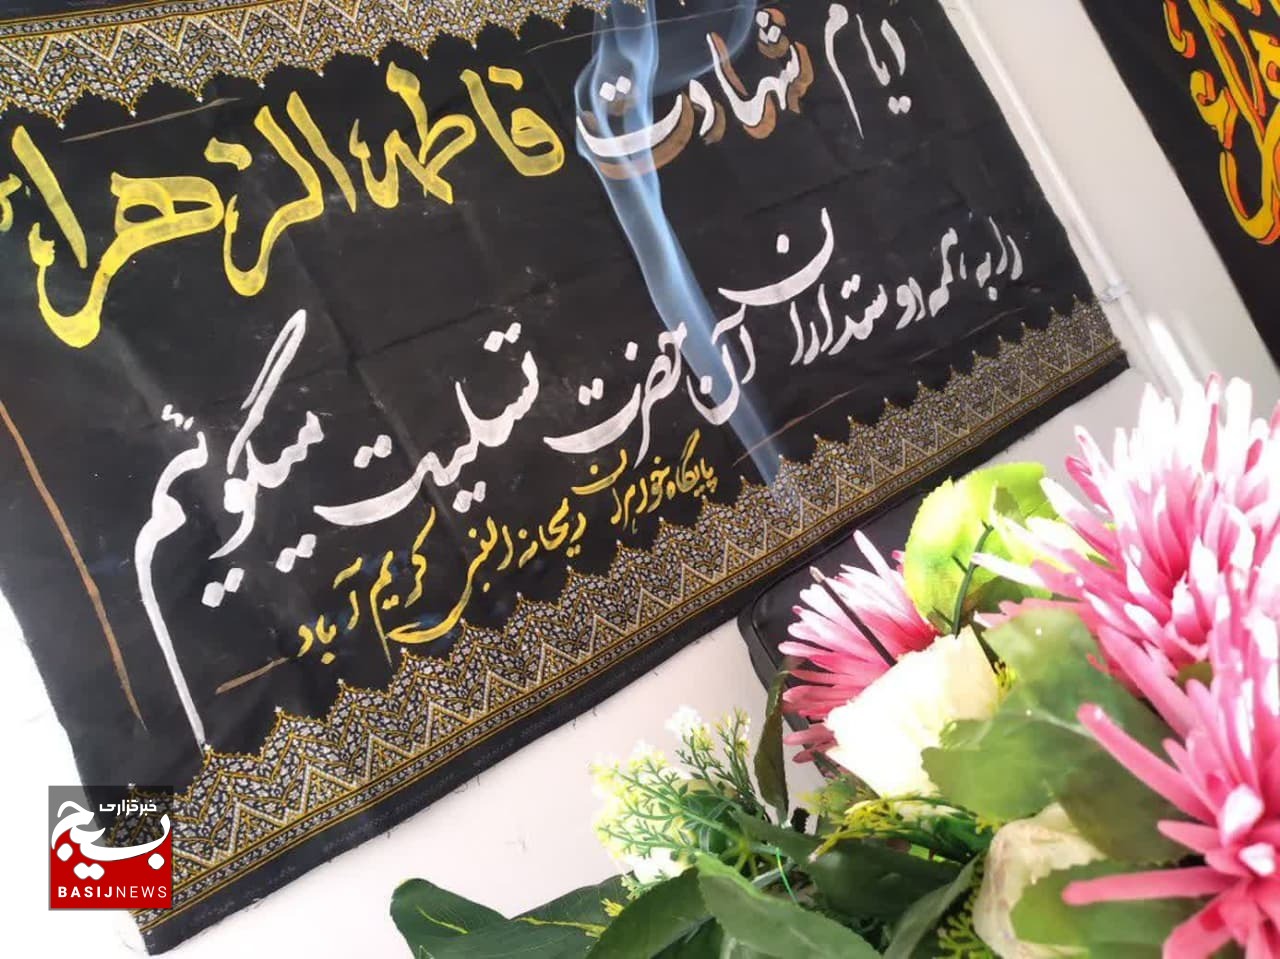 ایام شهادت فاطمه الزهراء
را به همه دوستداران آن حضرت تسلیت میگوئیم
پایگاه خواهران ریحانه النبی کریم آباد
خبرگزاری
بسیج
BASIJNEWS